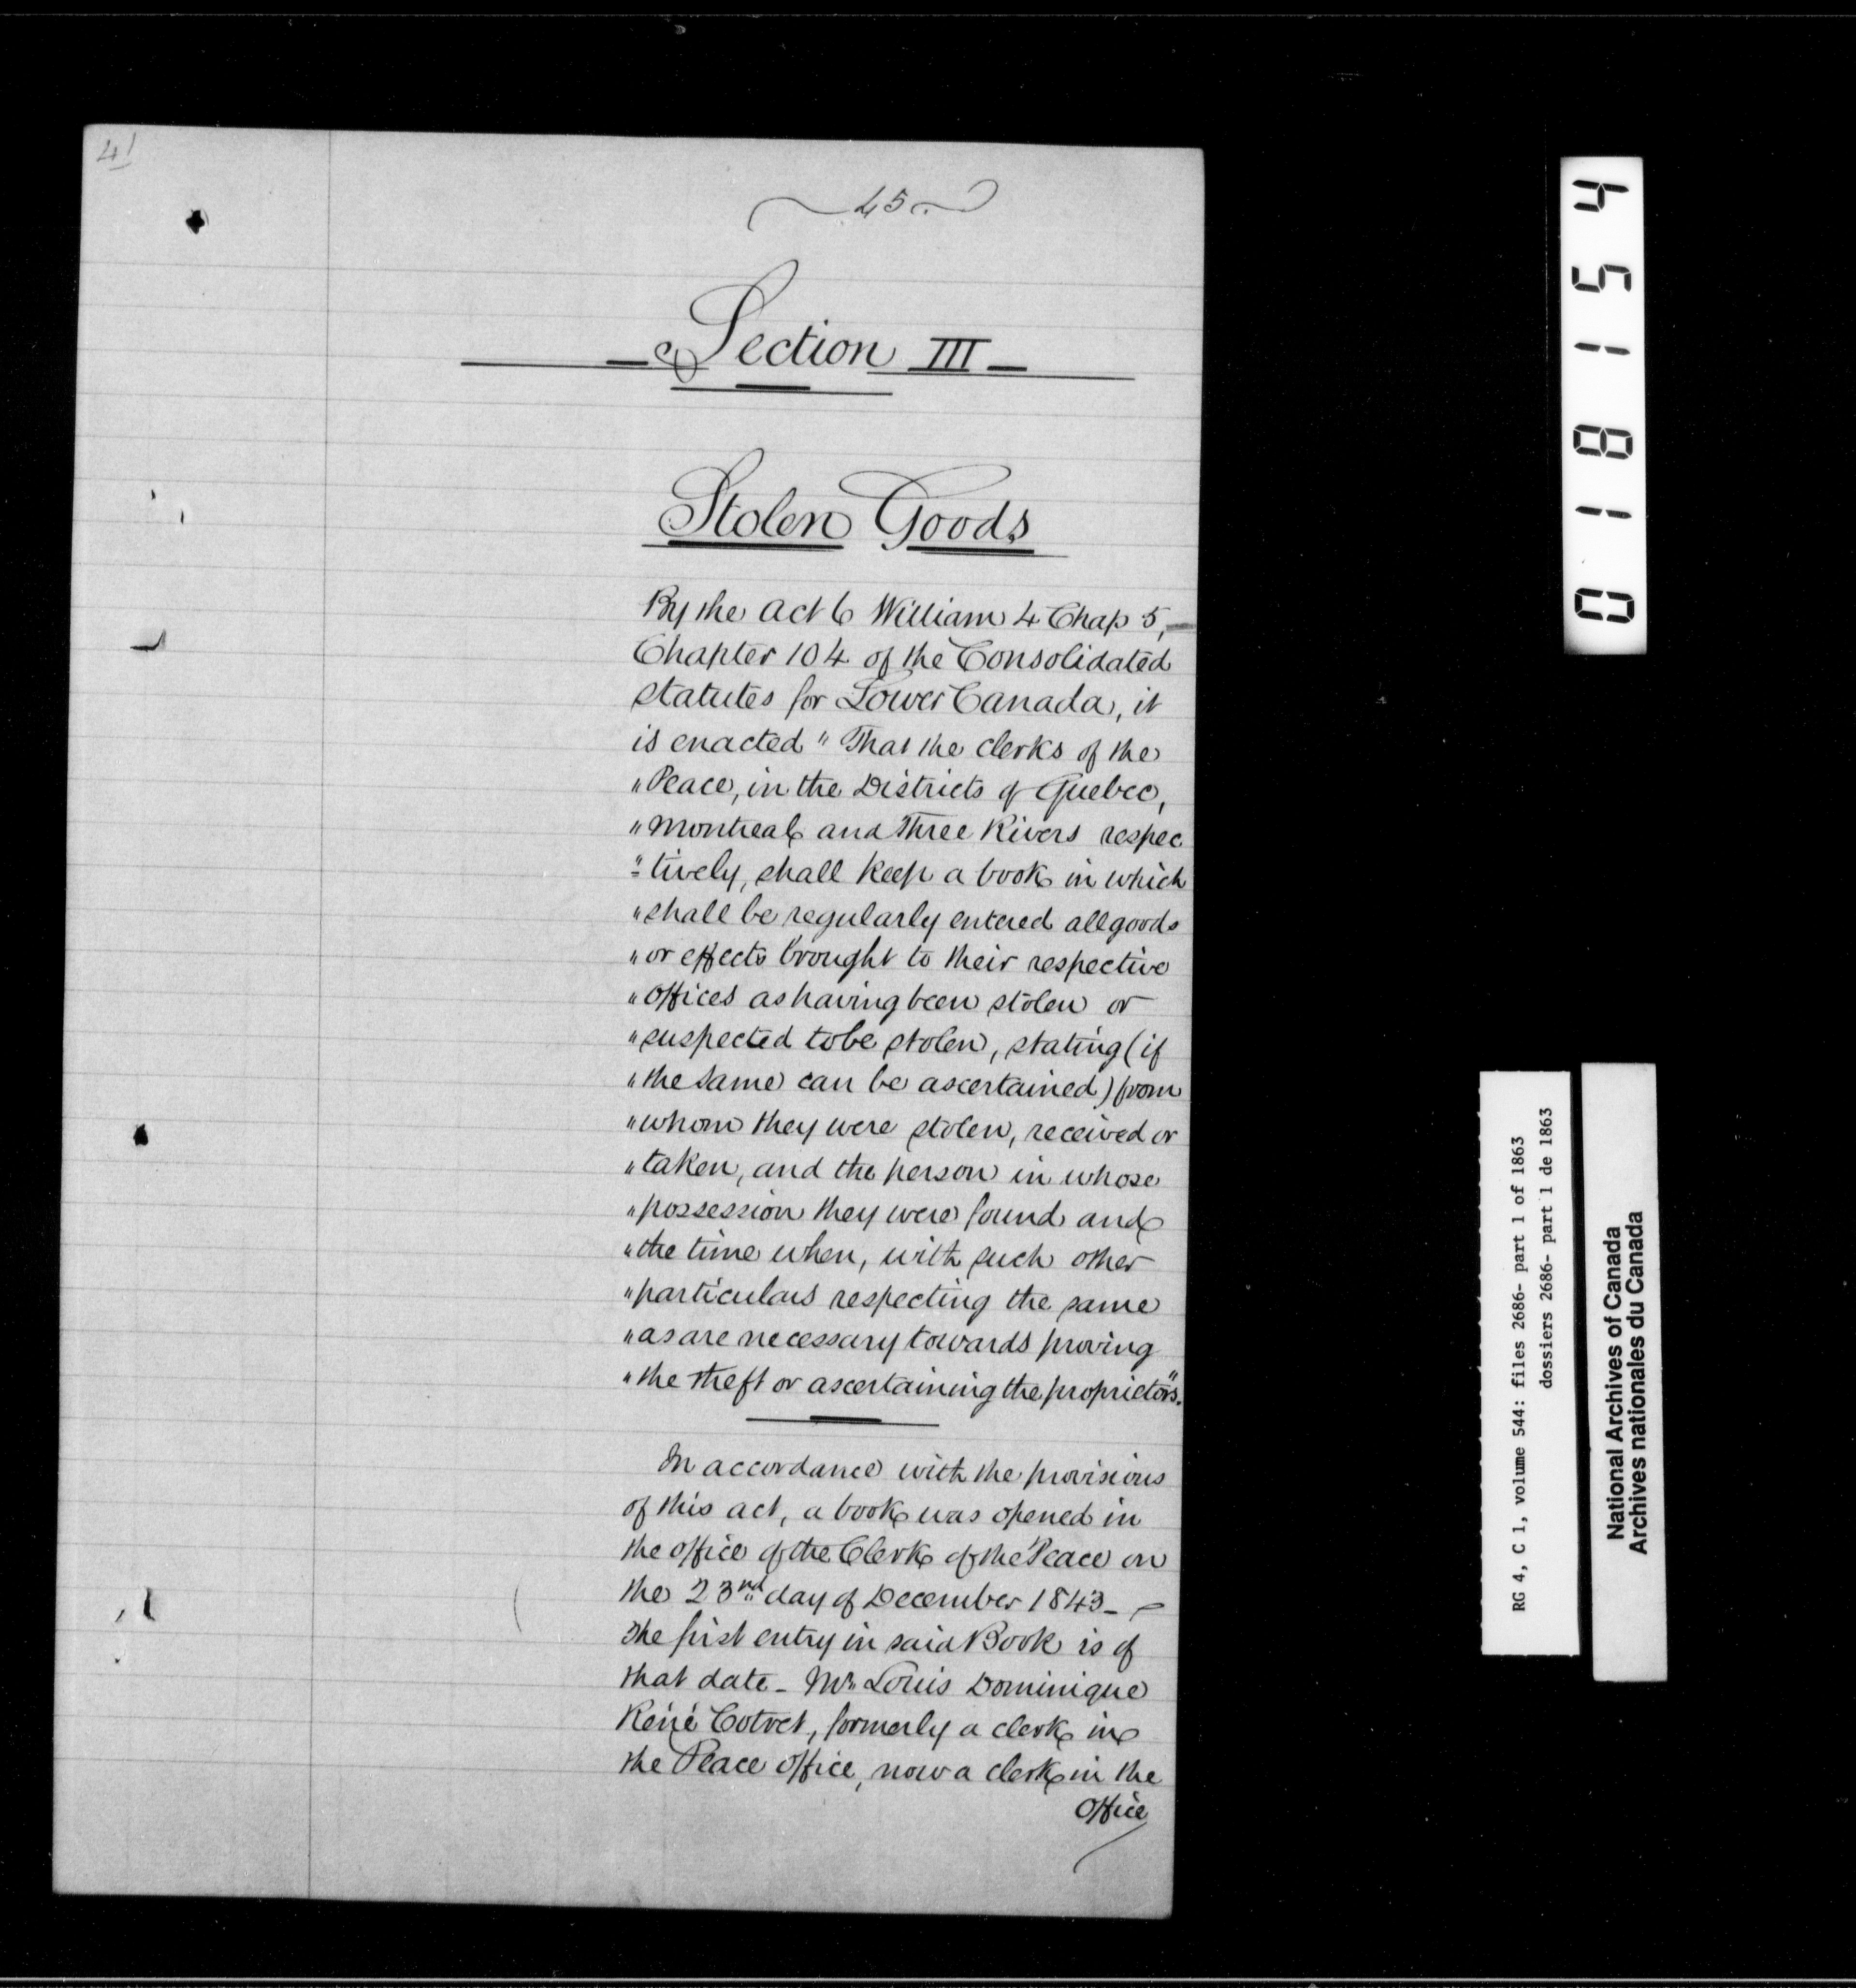 41
45
Section III
Stolen Goods
By the act 6 William 4 Chap 5,
Chapter 104 of the Consolidated
statutes for Lower Canada, it
is enacted " That the clerks of the
" Peace, in the Districts of Quebec,
" Montreal and Three Rivers respec
" tively, shall keep a book in which
" shall be regularly entered all goods
" or effects brought to their respective
" offices as having been stolen or
" suspected to be stolen, stating (if
" the same can be ascertained) from
" whom they were stolen, received or
" taken, and the person in whose
" possession they were found and
" the time when, with such other
" particulars respecting the same
" as are necessary towards proving
" the theft or ascertaining the proprietors."
In accordance with the provisions
of this act, a book was opened in
the office of the Clerk of the Peace on
the 23rd day of December 1843 -
The first entry in said Book is of
that date - Mr. Louis Dominique
René Cotret, formerly a clerk in
the Peace office, now a clerk in the
Office
018154
RG 4, C 1, volume 544: files 2686- part 1 of 1863
dossiers 2686- part 1 de 1863
National Archives of Canada
Archives nationales du Canada